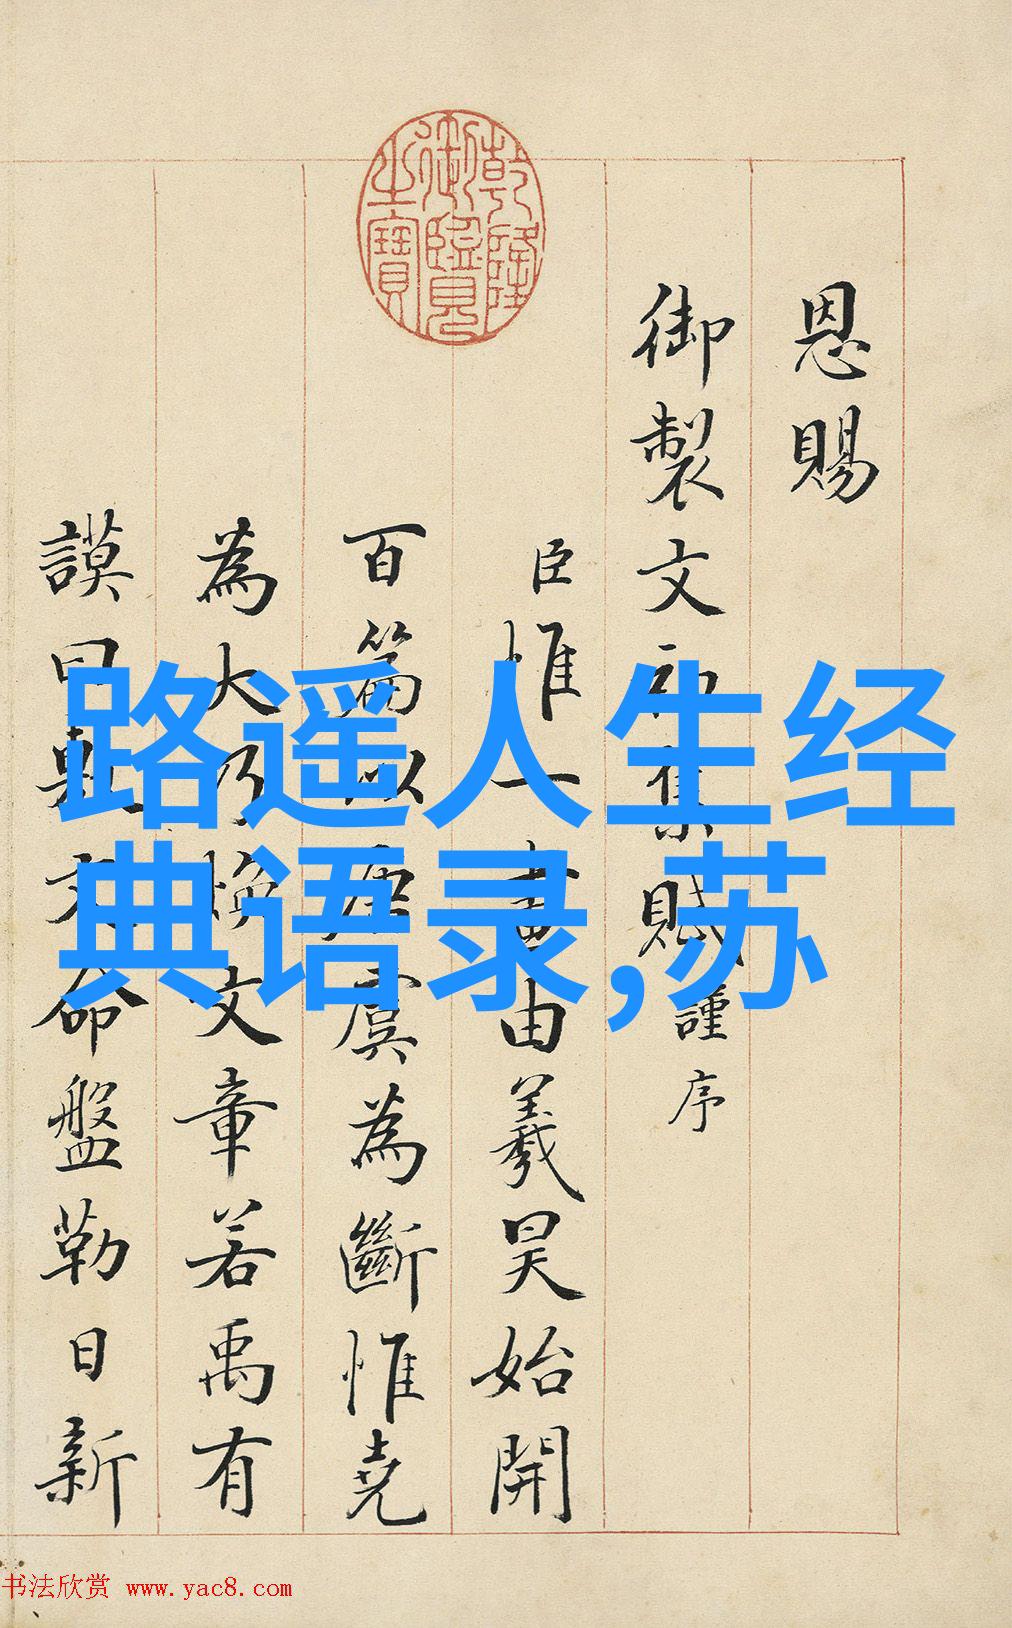 乾隆御覽之寶
恩賜
御製文初集賦謹序
臣惟一畫由羲昊始開
百篇以唐虞為斷惟堯
為大乃煥文章若禹有
謨曰敷文命盤勒日新
路遥人生经
典语录,苏
书法欣赏 www.yac8.com